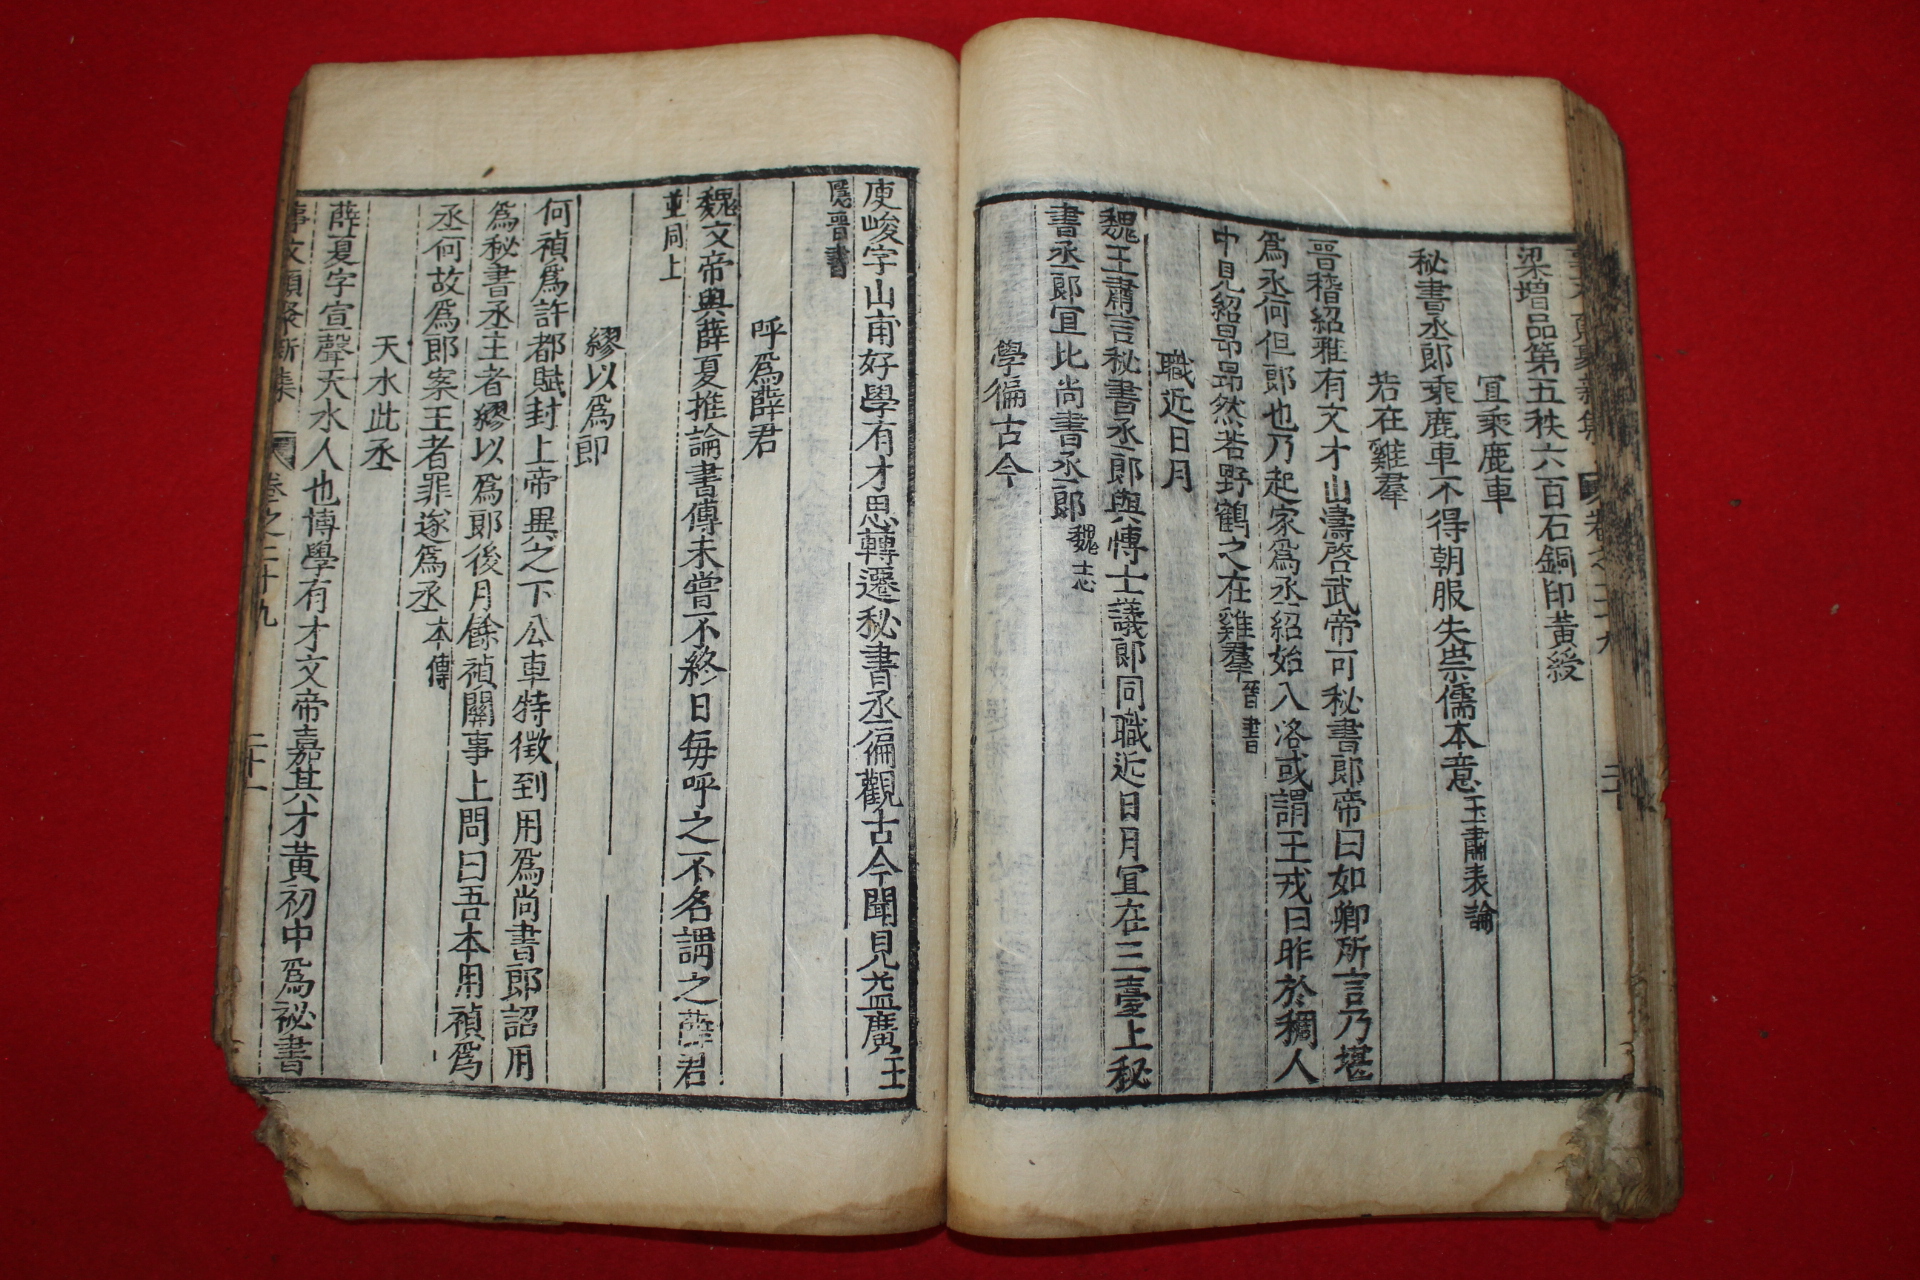 梁增品第五秩六百石銅印黃綬
宜乘鹿車
秘書丞郎乘鹿車不得朝服失崇儒本意王肅表論
若在雞羣
晉稽紹雅有文才山濤啓武帝可秘書郎帝曰如卿所言乃堪
爲丞何但郎也乃起家爲丞紹始入洛或謂王戎曰昨於稠人
中見紹昻昻然若野鶴之在雞羣晉書
職近日月
魏王肅言秘書丞郎與愽士議郎同職近日月宜在三臺上秘
書丞郎宜比尚書丞郎魏志
學徧古今
庾峻字山甫好學有才思轉遷秘書丞徧觀古今聞見益廣王
隱晉書
呼爲薛君
魏文帝與薛夏推論書傳未嘗不終日每呼之不名謂之薛君
並同上
繆以爲郎
何禎爲許都賦封上帝異之下公車特徵到用爲尚書郎詔用
爲秘書丞主者繆以爲郎後月餘禎關事上問曰吾本用禎爲
丞何故爲郎案王者罪遂爲丞本傳
天水此丞
薛夏字宣聲天水人也博學有才文帝嘉其才黃初中爲祕書
事文類聚新集 卷之二十九 二十一